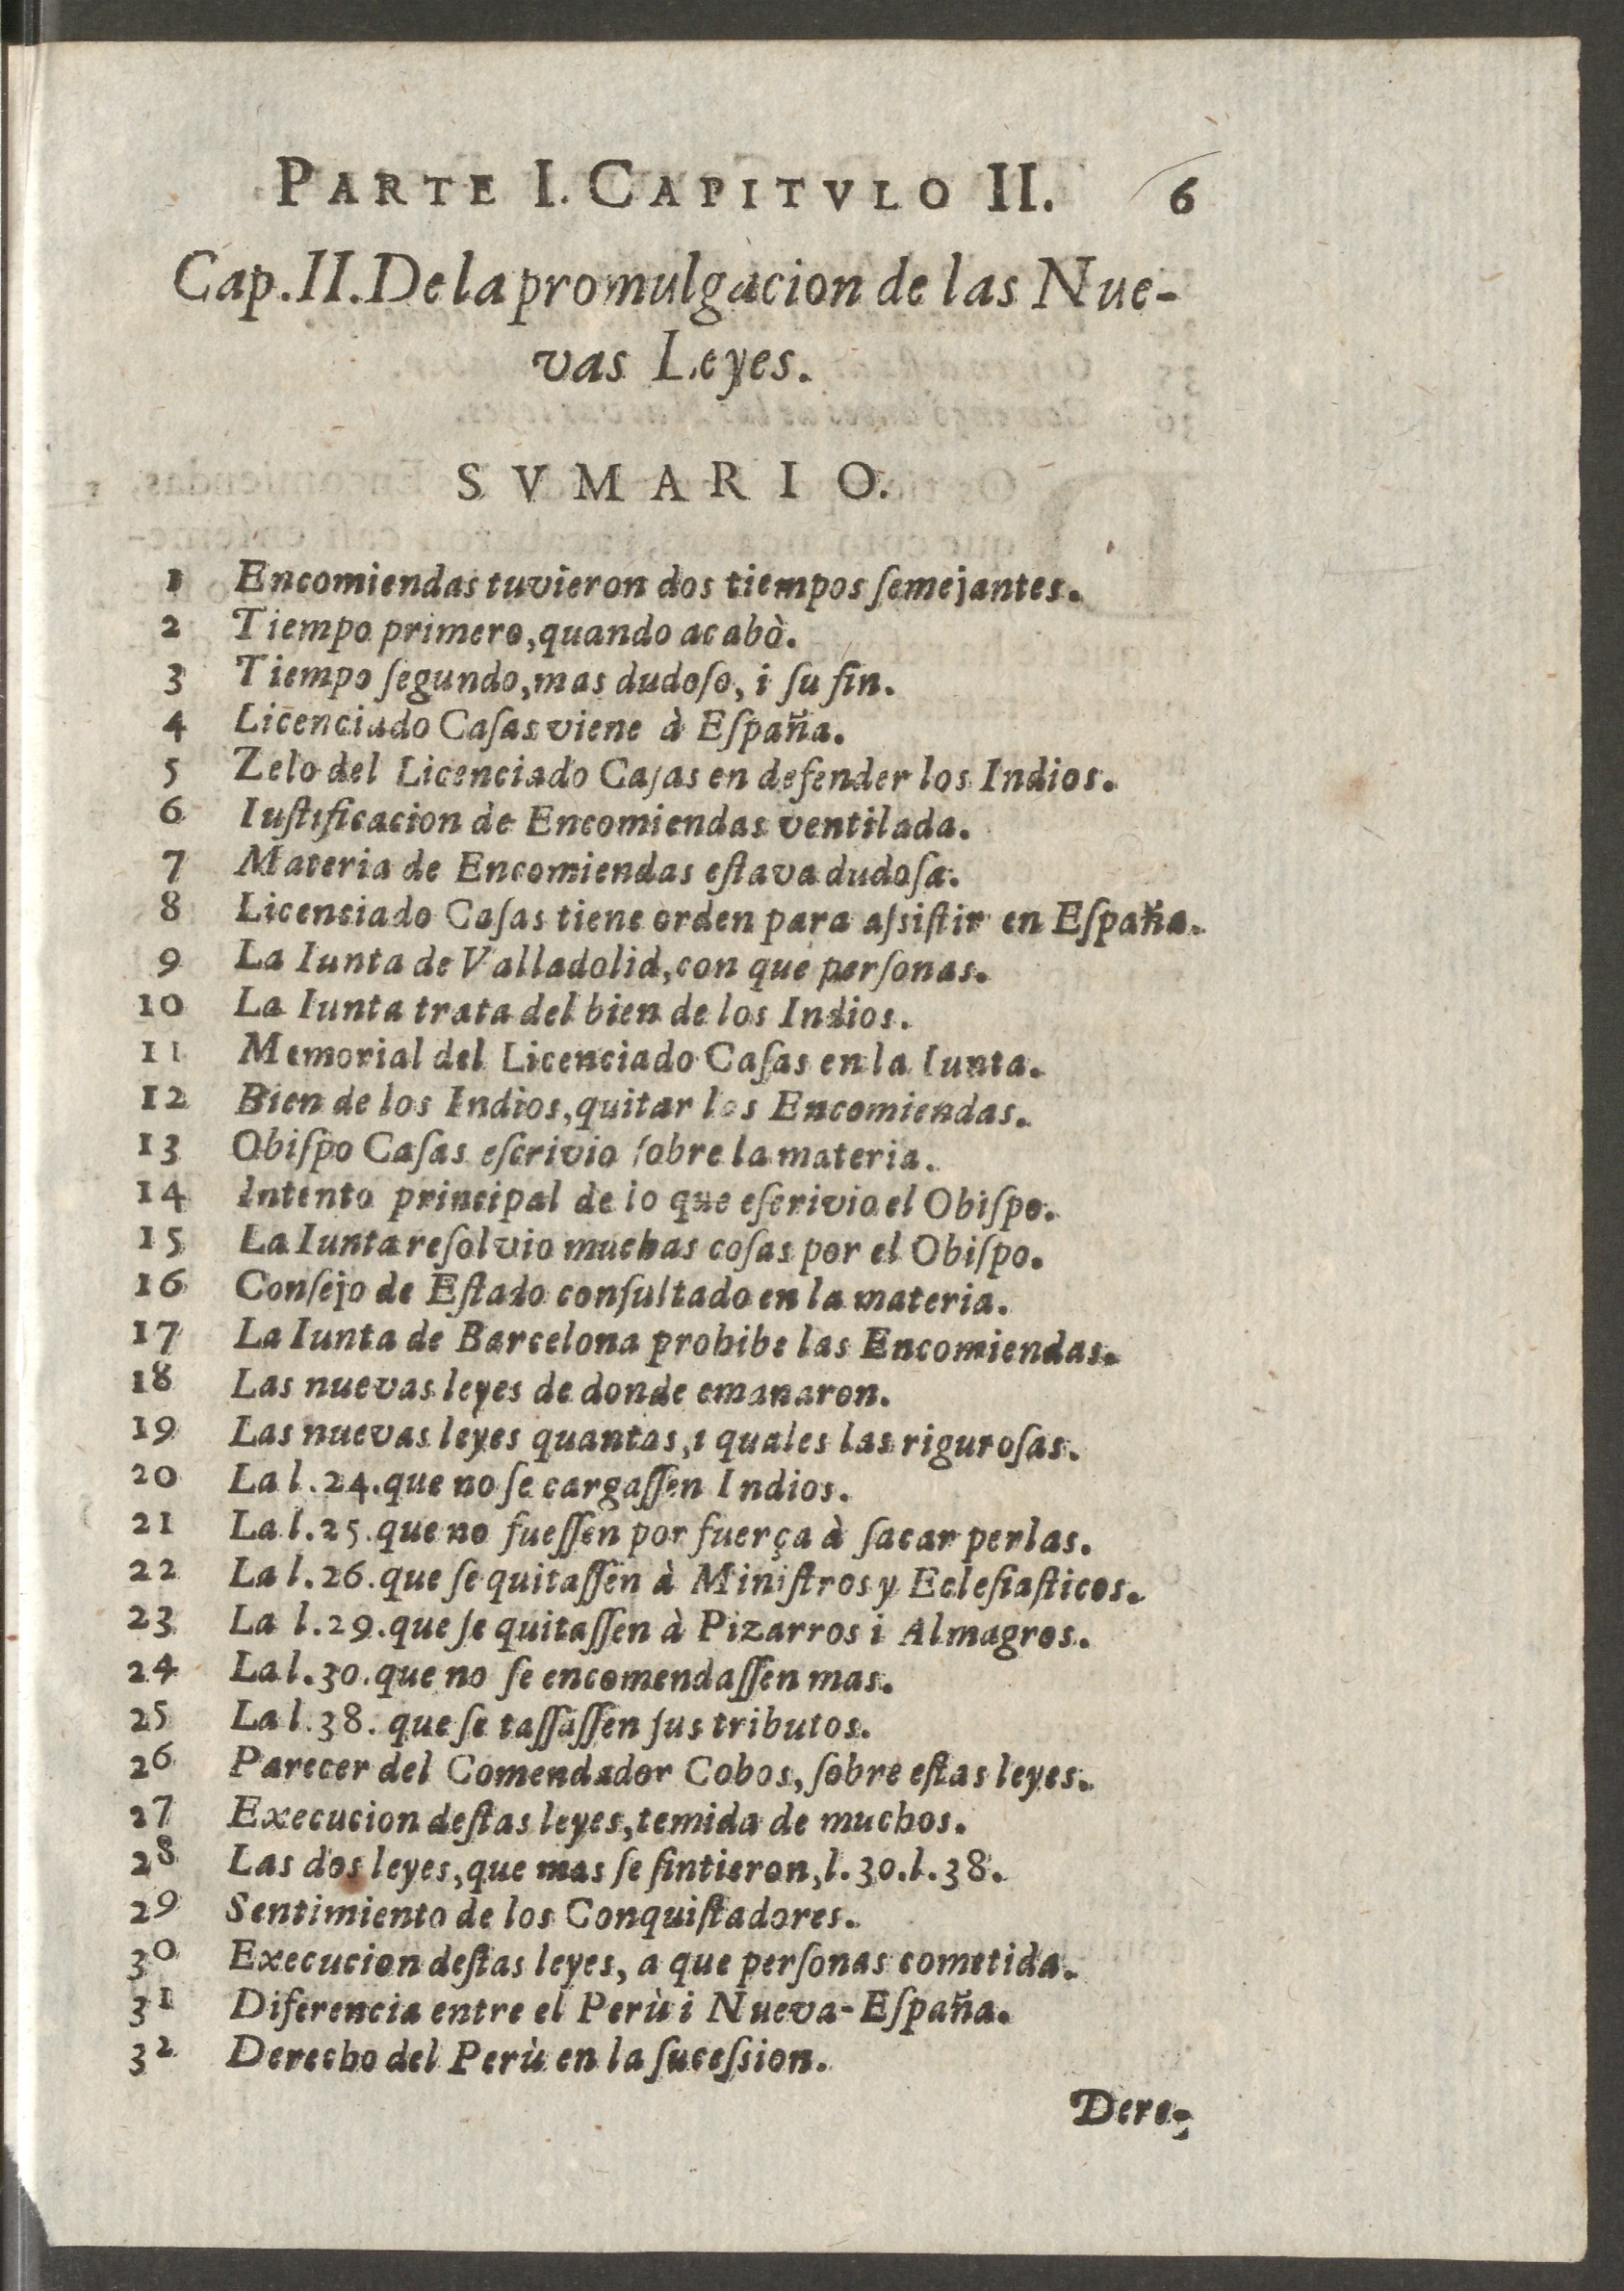 PARTE I. CAPITVLO II. 6
Cap.II. De la promulgacion de las Nue-
vas Leyes.
SVMARIO.
1 Encomiendas tuvieron dos tiempos ſemejantes.
2 Tiempo primero, quando acabò.
3 Tiempo ſegundo, mas dudoſo, i ſu fin.
4 Licenciado Caſas viene à Eſpaña.
5 Zelo del Licenciado Caſas en defender los Indios.
6 Iuſtificacion de Encomiendas ventilada.
7 Materia de Encomiendas eſtava dudoſa.
8 Licenciado Caſas tiene orden para aſsiſtir en Eſpaña.
9 La Iunta de Valladolid, con que perſonas.
10 La Iunta trata del bien de los Indios.
11 Memorial del Licenciado Caſas en la Iunta.
12 Bien de los Indios, quitar las Encomiendas.
13 Obiſpo Caſas eſcrivio ſobre la materia.
14 Intento principal de lo que eſcrivio el Obiſpo.
15 La Iunta reſolvio muchas coſas por el Obiſpo.
16 Conſejo de Eſtado conſultado en la materia.
17 La Iunta de Barcelona prohibe las Encomiendas.
18 Las nuevas leyes de donde emanaron.
19 Las nuevas leyes quantas, i quales las riguroſas.
20 La l.24. que no ſe cargaſſen Indios.
21 La l.25. que no fueſſen por fuerça à ſacar perlas.
22 La l.26. que ſe quitaſſen à Miniſtros y Ecleſiaſticos.
23 La l.29. que ſe quitaſſen à Pizarros i Almagros.
24 La l.30. que no ſe encomendaſſen mas.
25 La l.38. que ſe taſſaſſen ſus tributos.
26 Parecer del Comendador Cobos, ſobre eſtas leyes.
27 Execucion deſtas leyes, temida de muchos.
28 Las dos leyes, que mas ſe ſintieron, l.30.l.38.
29 Sentimiento de los Conquiſtadores.
30 Execucion deſtas leyes, a que perſonas cometida.
31 Diferencia entre el Perù i Nueva-Eſpaña.
32 Derecho del Perù en la ſuceſsion.
Dere-